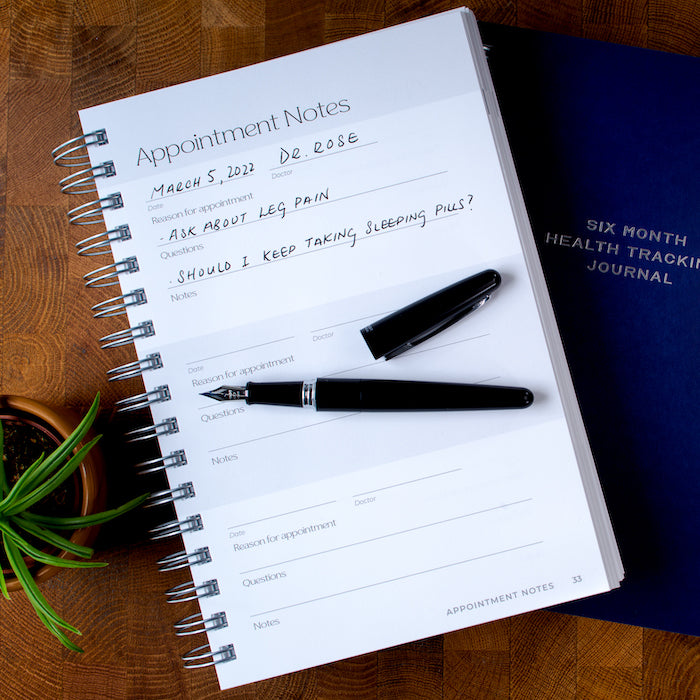 Appointment Notes
MARCH 5, 2022 DR. ROSE
Date Doctor
Reason for appointment
· ASK ABOUT LEG PAIN
Questions
· SHOULD I KEEP TAKING SLEEPING PILLS?
Notes
Date Doctor
Reason for appointment
Questions
Notes
Date Doctor
Reason for appointment
Questions
Notes
APPOINTMENT NOTES 33
SIX MONTH
HEALTH TRACKIN
JOURNAL